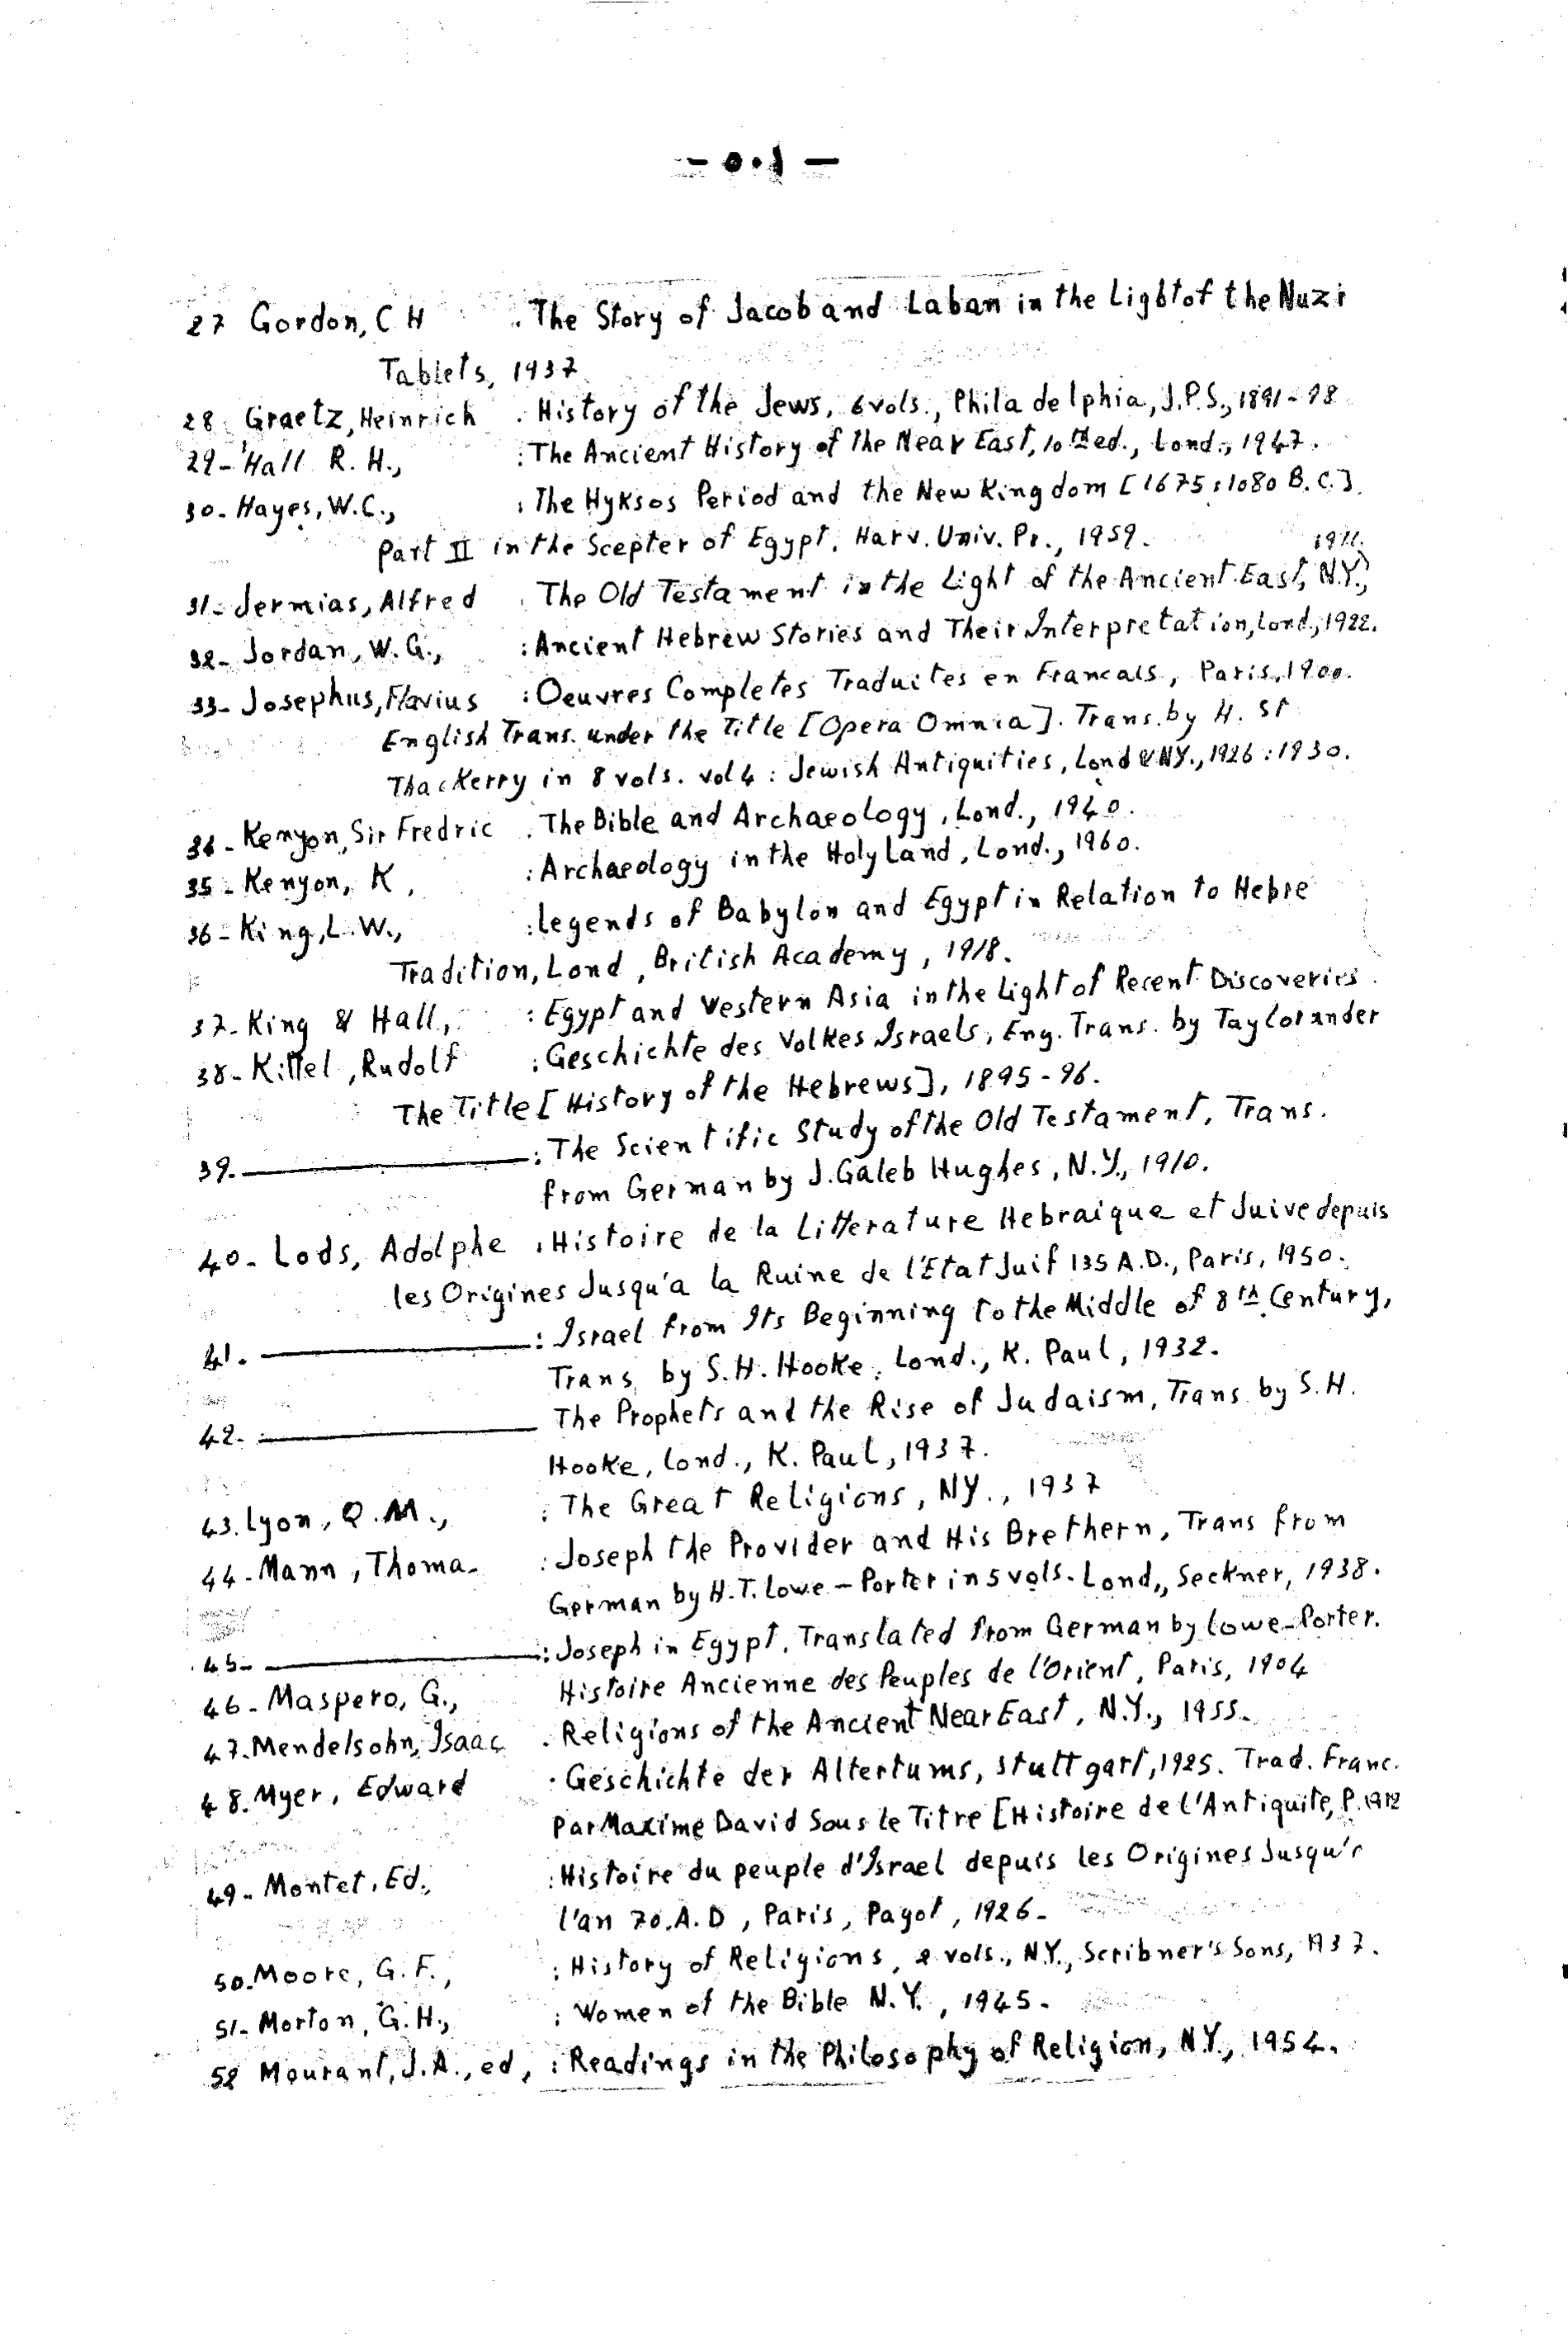 — ٥٠١ —
27 Gordon, C H . The Story of Jacob and Laban in the Light of the Nuzi
Tablets, 1937
28. Graetz, Heinrich . History of the Jews, 6 vols., Philadelphia, J.P.S., 1891-98
29- Hall R. H., : The Ancient History of the Near East, 10th ed., Lond., 1947.
30- Hayes, W.C., : The Hyksos Period and the New Kingdom [1675:1080 B.C.].
Part II in the Scepter of Egypt, Harv. Univ. Pr., 1959.
31- Jermias, Alfred . The Old Testament in the Light of the Ancient East, N.Y.,
32- Jordan, W.G., : Ancient Hebrew Stories and Their Interpretation, Lond., 1922.
33- Josephus, Flavius : Oeuvres Completes Traduites en Francais, Paris, 1900.
English Trans. under the Title [Opera Omnia]. Trans. by H. St
Thackerry in 8 vols. vol 4 : Jewish Antiquities, Lond & NY., 1926:1930.
34- Kenyon, Sir Fredric . The Bible and Archaeology, Lond., 1940.
35- Kenyon, K, : Archaeology in the Holy Land, Lond., 1960.
36- King, L.W., : Legends of Babylon and Egypt in Relation to Hebre
Tradition, Lond, British Academy, 1918.
37- King & Hall, : Egypt and Western Asia in the Light of Recent Discoveries.
38- Kittel, Rudolf : Geschichte des Volkes Israels, Eng. Trans. by Taylor under
The Title [History of the Hebrews], 1895-96.
39. ———— : The Scientific Study of the Old Testament, Trans.
from German by J. Galeb Hughes, N.Y., 1910.
40- Lods, Adolphe : Histoire de la Litterature Hebraique et Juive depuis
les Origines Jusqu'a la Ruine de l'Etat Juif 135 A.D., Paris, 1950.
41. ———— : Israel from Its Beginning to the Middle of 8th Century,
Trans. by S.H. Hooke, Lond., K. Paul, 1932.
42. ———— The Prophets and the Rise of Judaism, Trans. by S.H.
Hooke, Lond., K. Paul, 1937.
43. Lyon, Q.M., : The Great Religions, NY., 1937
44- Mann, Thoma- : Joseph the Provider and His Brethern, Trans from
German by H.T. Lowe-Porter in 5 vols. Lond., Seckner, 1938.
45- ———— : Joseph in Egypt, Translated from German by Lowe-Porter.
46- Maspero, G., Histoire Ancienne des Peuples de l'Orient, Paris, 1904
47. Mendelsohn, Isaac . Religions of the Ancient Near East, N.Y., 1955.
48. Myer, Edward . Geschichte der Altertums, Stuttgart, 1925. Trad. Franc.
Par Maxime David Sous le Titre [Histoire de l'Antiquite, P. 1912
49- Montet, Ed., : Histoire du peuple d'Israel depuis les Origines Jusqu'
l'an 70. A.D, Paris, Payot, 1926-
50. Moore, G.F., : History of Religions, 2 vols., N.Y., Scribner's Sons, 1937.
51- Morton, G.H., : Women of the Bible N.Y., 1945.
52 Mourant, J.A., ed, : Readings in the Philosophy of Religion, N.Y., 1954.